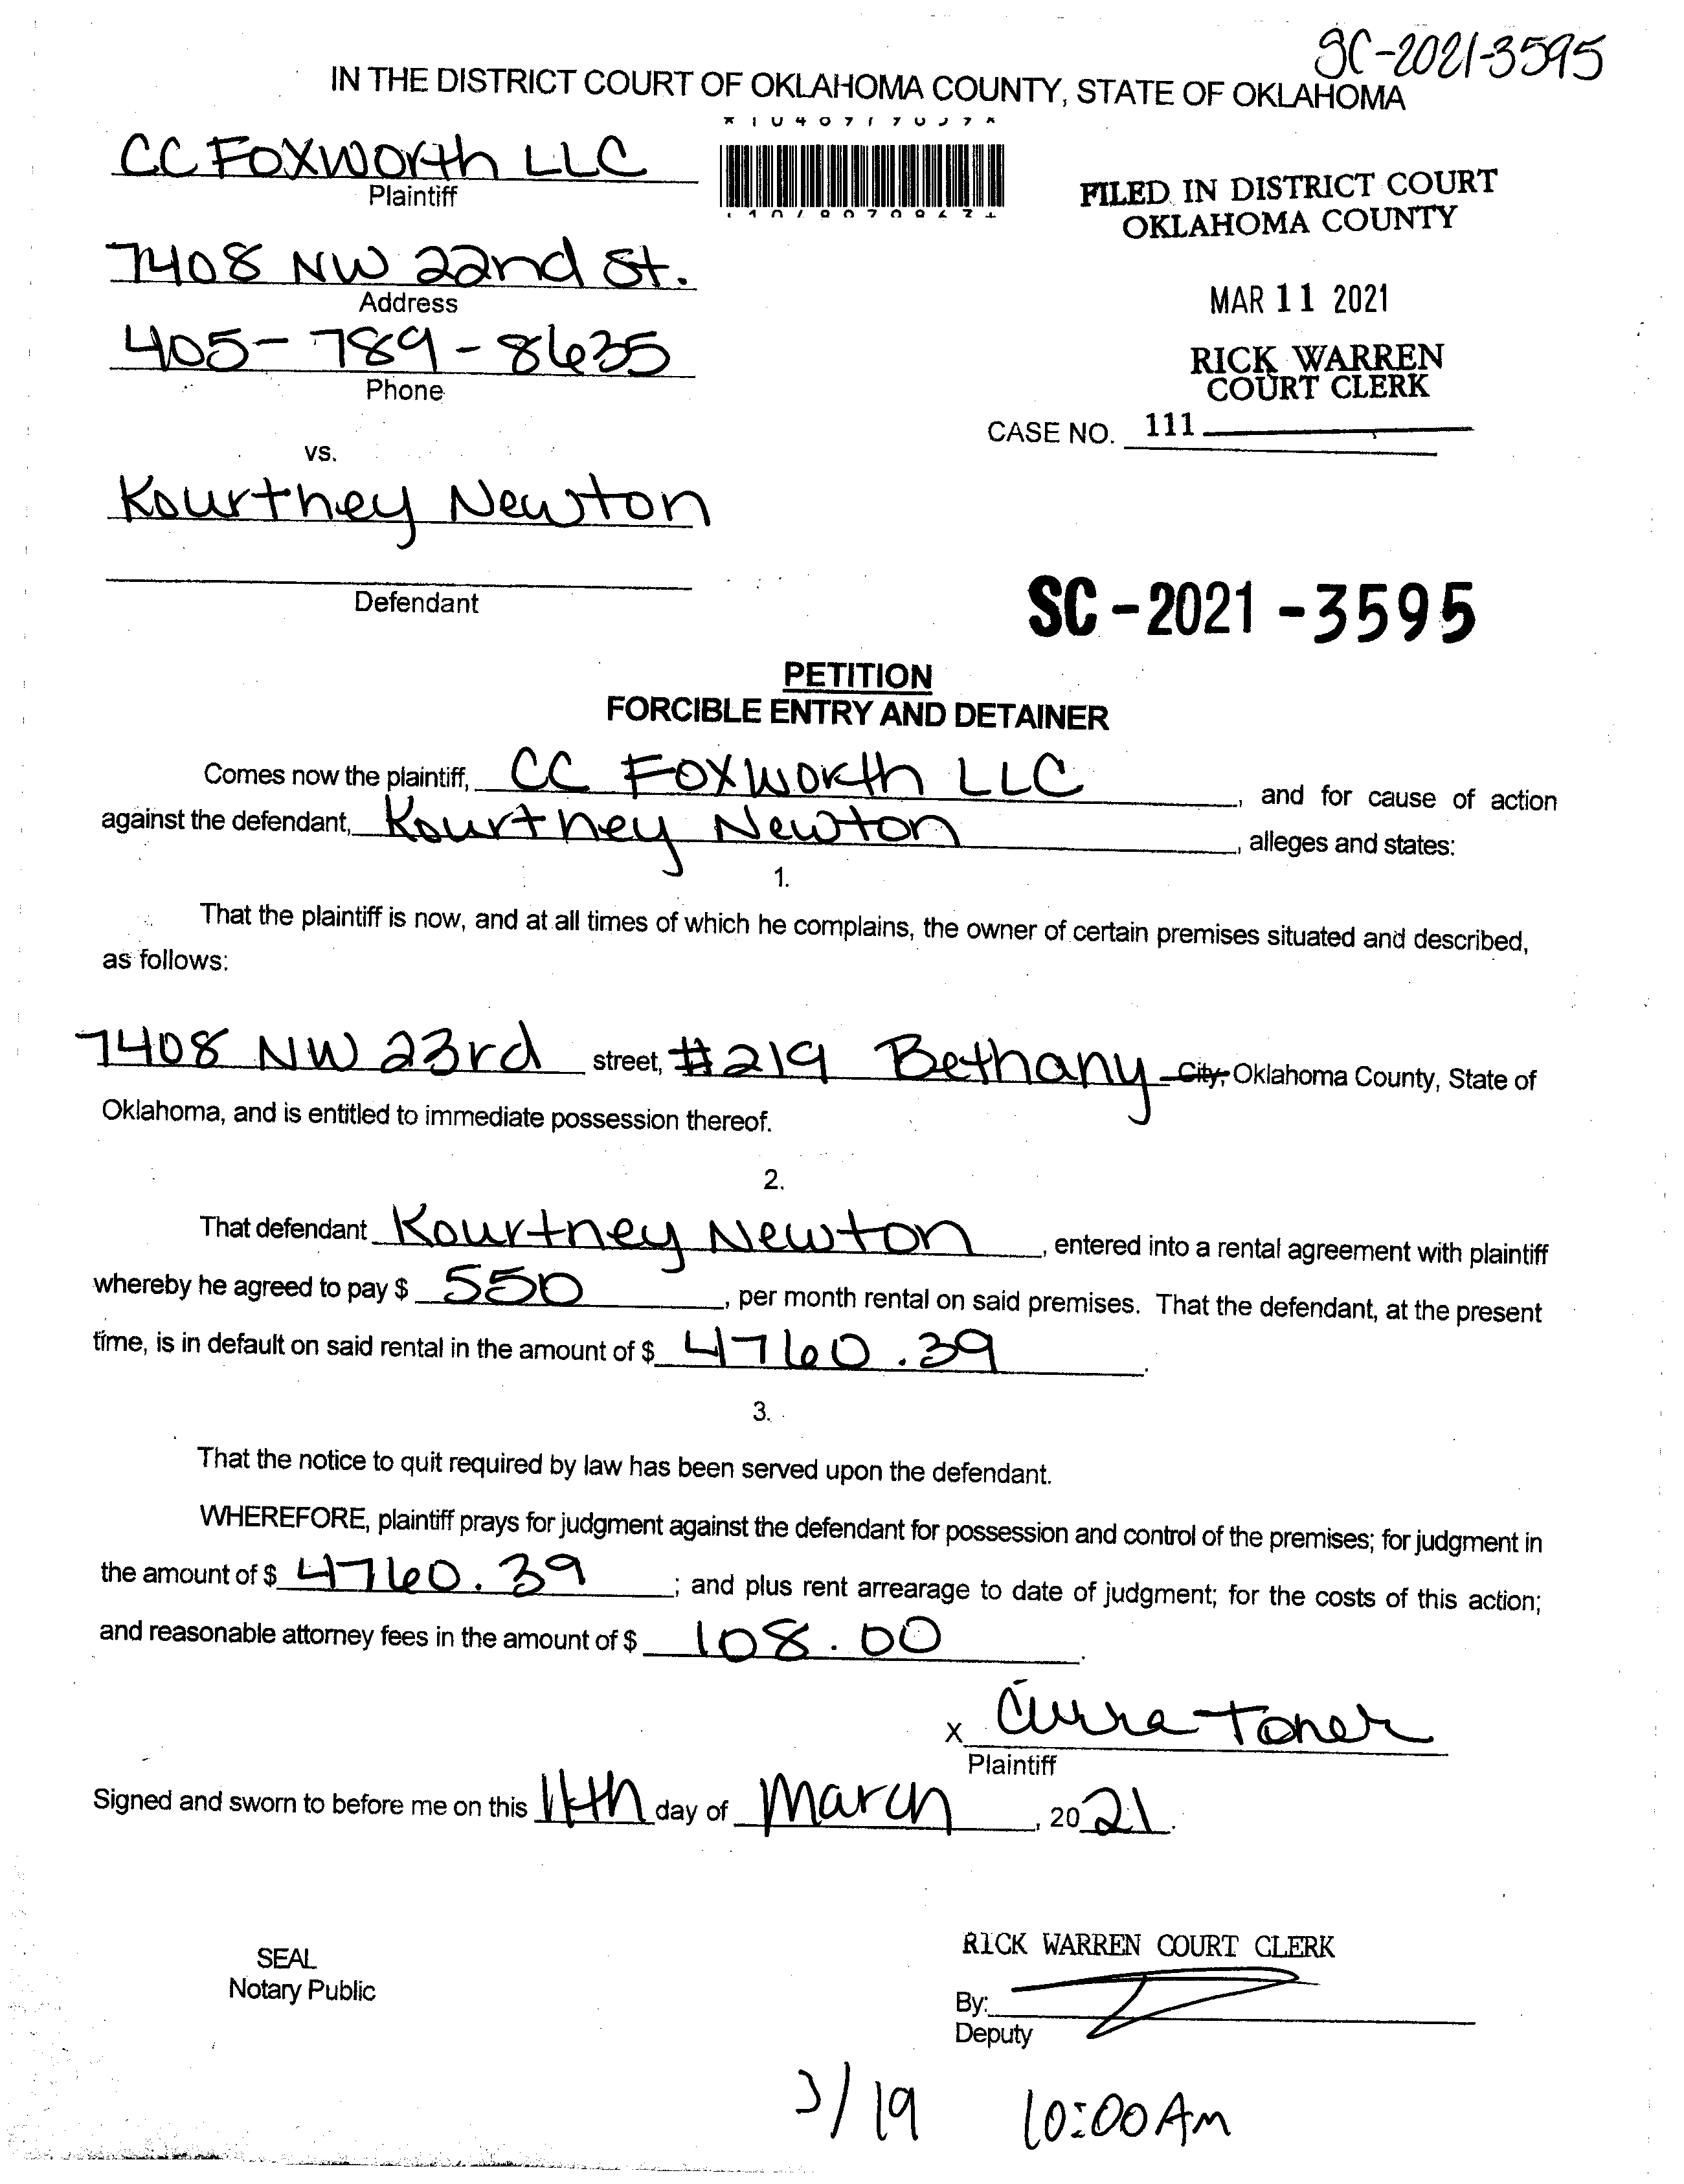 SC-2021-3595
IN THE DISTRICT COURT OF OKLAHOMA COUNTY, STATE OF OKLAHOMA
CC Foxworth LLC
Plaintiff
FILED IN DISTRICT COURT
OKLAHOMA COUNTY
7408 NW 22nd St.
Address
MAR 11 2021
405-789-8635
Phone
RICK WARREN
COURT CLERK
CASE NO. 111
vs.
Kourtney Newton
Defendant
SC-2021-3595
PETITION
FORCIBLE ENTRY AND DETAINER
Comes now the plaintiff, CC Foxworth LLC, and for cause of action
against the defendant, Kourtney Newton, alleges and states:
1.
That the plaintiff is now, and at all times of which he complains, the owner of certain premises situated and described,
as follows:
7408 NW 23rd street, #219 Bethany City, Oklahoma County, State of
Oklahoma, and is entitled to immediate possession thereof.
2.
That defendant Kourtney Newton, entered into a rental agreement with plaintiff
whereby he agreed to pay $ 550, per month rental on said premises. That the defendant, at the present
time, is in default on said rental in the amount of $ 4760.39.
3.
That the notice to quit required by law has been served upon the defendant.
WHEREFORE, plaintiff prays for judgment against the defendant for possession and control of the premises; for judgment in
the amount of $ 4760.39; and plus rent arrearage to date of judgment; for the costs of this action;
and reasonable attorney fees in the amount of $ 108.00.
X Toner
Plaintiff
Signed and sworn to before me on this 11th day of March, 2021.
SEAL
Notary Public
RICK WARREN COURT CLERK
By:
Deputy
3/19 10:00 AM